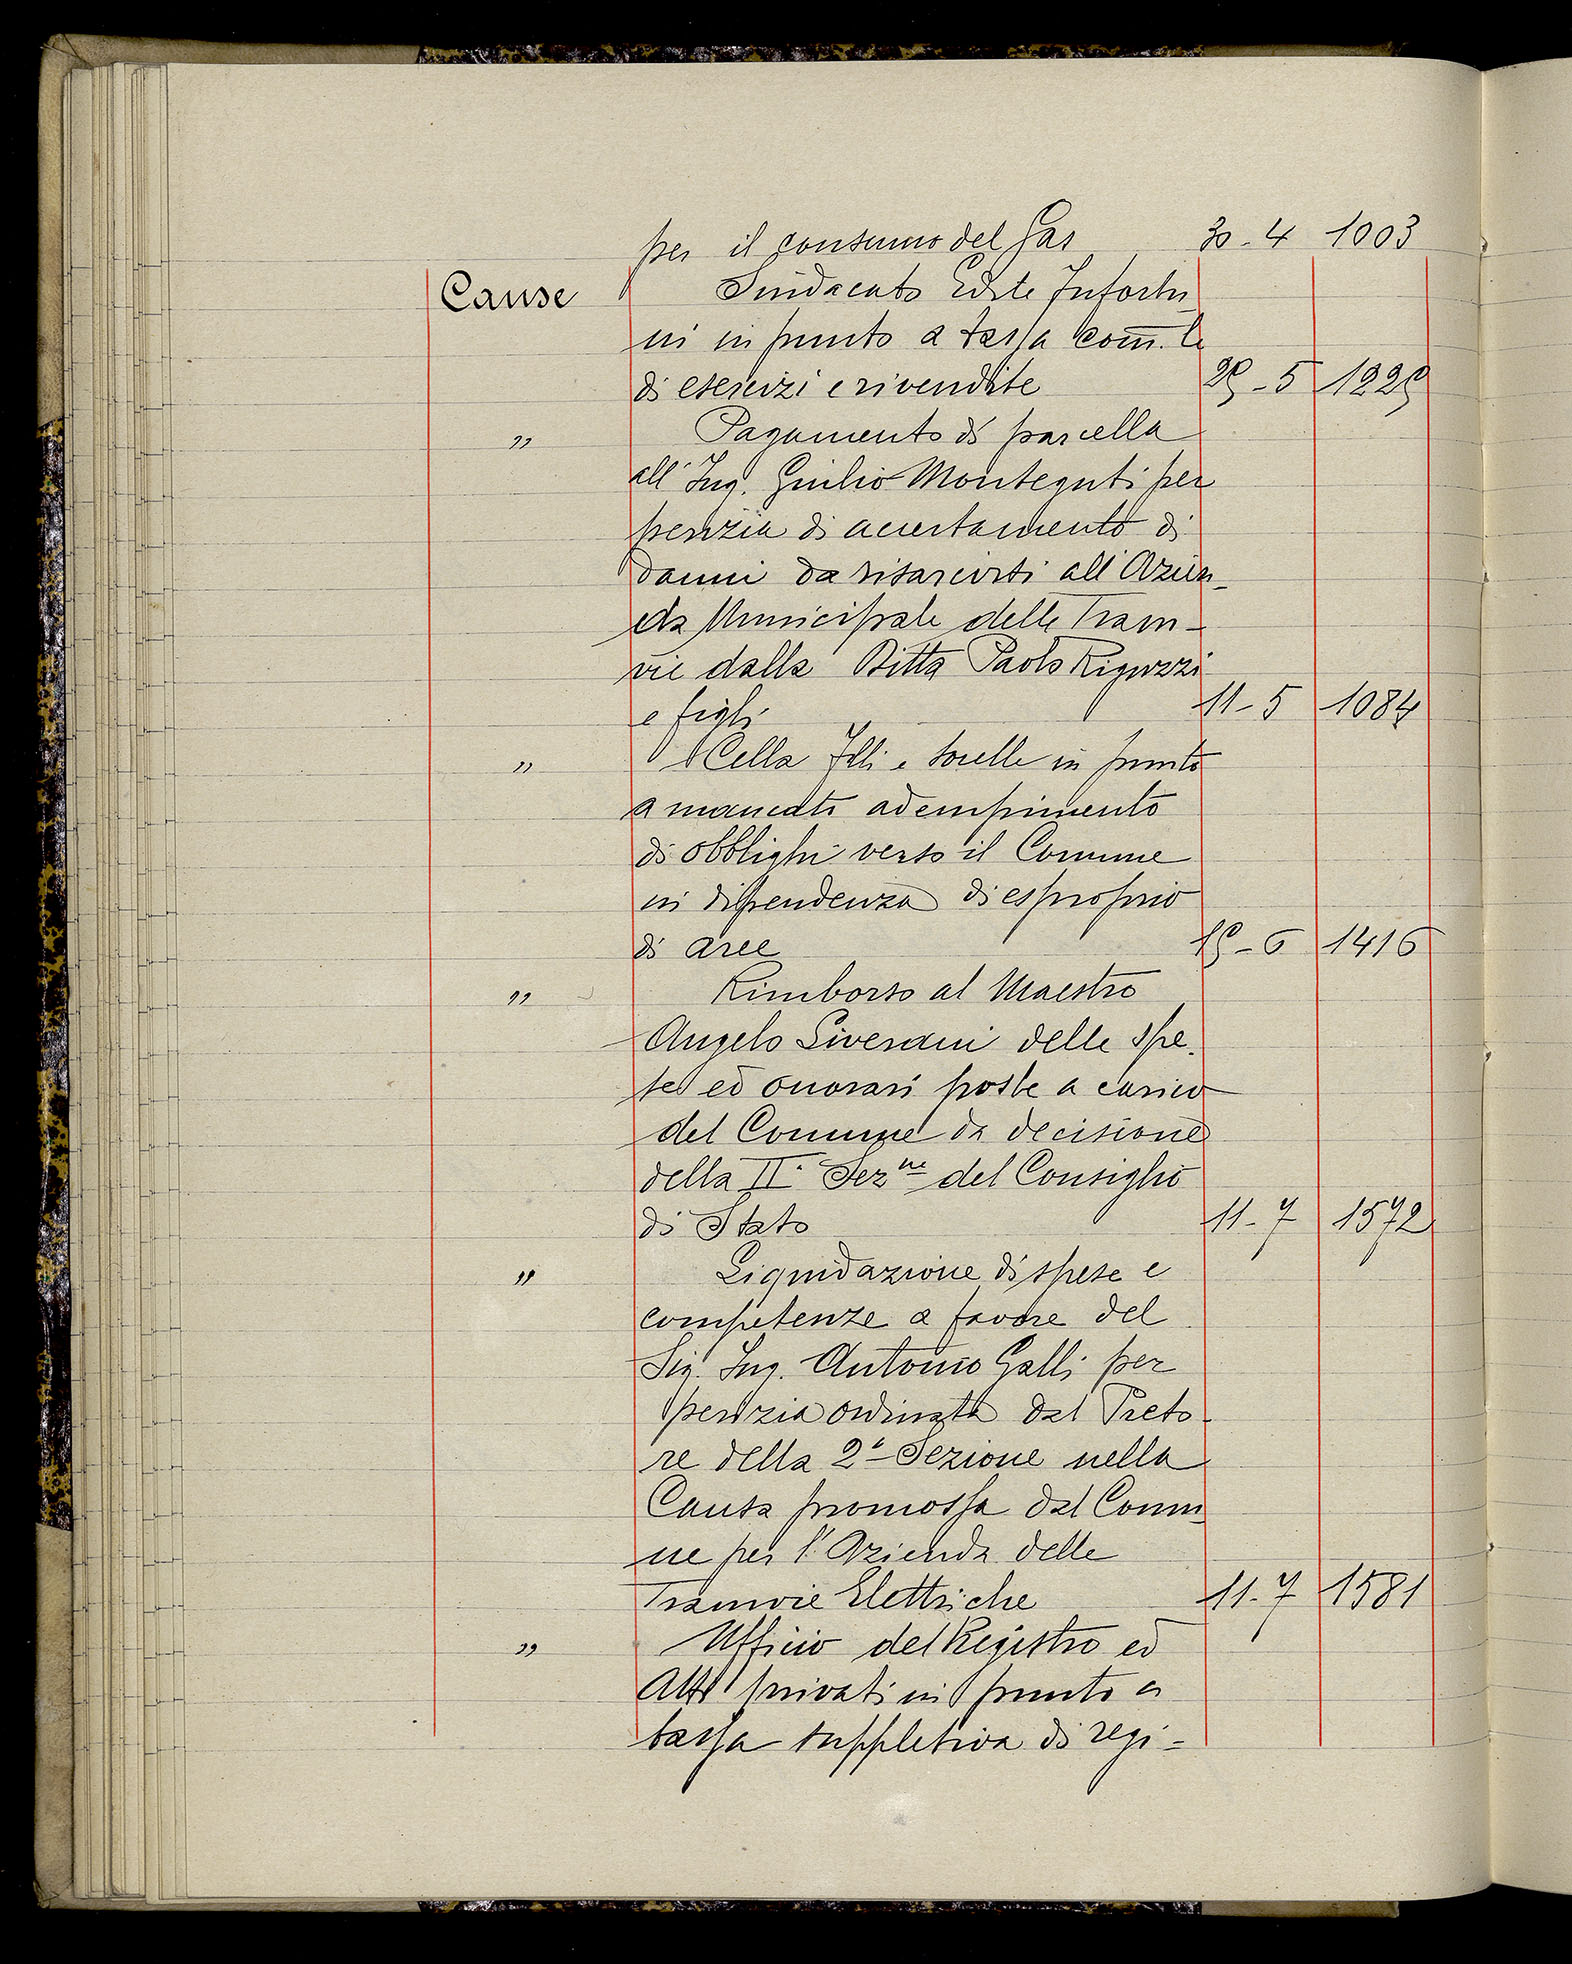 per il consumo del Gas 30-4 1003
Cause Sindacato Edile Infortu
ni in punto a tassa com.le
di esercizi e rivendite 29-5 1229
" Pagamento di parcella
all'Ing. Giulio Monteguti per
perizia di accertamento di
danni da risarcirsi all'Azien-
da Municipale delle Tram-
vie dalla Ditta Paolo Riguzzi
e figli 11-5 1084
" Cella F.lli e sorelle in punto
a mancato adempimento
di obblighi verso il Comune
in dipendenza di esproprio
di aree 19-6 1416
" Rimborso al Maestro
Angelo Liverani delle spe-
se ed onorari poste a carico
del Comune da decisione
della II. Sez.ne del Consiglio
di Stato 11-7 1572
" Liquidazione di spese e
competenze a favore del
Sig. Ing. Antonio Galli per
perizia ordinata dal Preto-
re della 2ª Sezione nella
Causa promossa dal Comu-
ne per l'Azienda delle
Tramvie Elettriche 11-7 1581
" Ufficio del Registro ed
Atti privati in punto a
tassa suppletiva di regi-